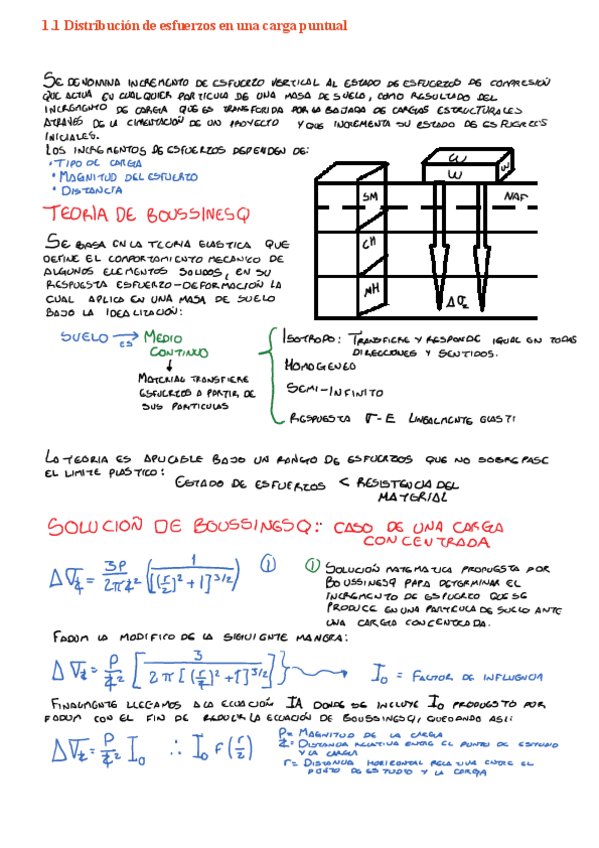 1.1 Distribución de esfuerzos en una carga puntual
SE DENOMINA INCREMENTO DE ESFUERZO VERTICAL AL ESTADO DE ESFUERZOS DE COMPRESIÓN
QUE ACTUA EN CUALQUIER PARTICULA DE UNA MASA DE SUELO, COMO RESULTADO DEL
INCREMENTO DE CARGA QUE ES TRANSFERIDA POR LA BAJADA DE CARGAS ESTRUCTURALES
ATRAVÉS DE LA CIMENTACIÓN DE UN PROYECTO Y QUE INCREMENTA SU ESTADO DE ESFUERZOS
INICIALES.
LOS INCREMENTOS DE ESFUERZOS DEPENDEN DE:
• TIPO DE CARGA
• MAGNITUD DEL ESFUERZO
• DISTANCIA
W
W
W
SM
NAF
CH
MH
Δσz
TEORÍA DE BOUSSINESQ
SE BASA EN LA TEORIA ELASTICA QUE
DEFINE EL COMPORTAMIENTO MECANICO DE
ALGUNOS ELEMENTOS SOLIDOS, EN SU
RESPUESTA ESFUERZO-DEFORMACIÓN LA
CUAL APLICA EN UNA MASA DE SUELO
BAJO LA IDEALIZACIÓN:
SUELO → ES MEDIO
CONTINUO
↓
MATERIAL TRANSFIERE
ESFUERZOS A PARTIR DE
SUS PARTICULAS
ISOTROPO: TRANSFIERE Y RESPONDE IGUAL EN TODAS
DIRECCIONES Y SENTIDOS.
HOMOGENEO
SEMI-INFINITO
RESPUESTA σ-E LINEALMENTE ELASTI
LA TEORIA ES APLICABLE BAJO UN RANGO DE ESFUERZOS QUE NO SOBREPASE
EL LIMITE PLASTICO:
ESTADO DE ESFUERZOS < RESISTENCIA DEL
MATERIAL
SOLUCIÓN DE BOUSSINESQ: CASO DE UNA CARGA
CONCENTRADA
Δσz = 3P/2πz² (1/[(r/z)²+1]^3/2) ①
① SOLUCIÓN MATEMATICA PROPUESTA POR
BOUSSINESQ PARA DETERMINAR EL
INCREMENTO DE ESFUERZO QUE SE
PRODUCE EN UNA PARTICULA DE SUELO ANTE
UNA CARGA CONCENTRADA.
FADUM LA MODIFICO DE LA SIGUIENTE MANERA:
Δσz = P/z² [3/2π[(r/z)²+1]^3/2] → I₀ = FACTOR DE INFLUENCIA
FINALMENTE LLEGAMOS A LA ECUACIÓN 1A DONDE SE INCLUYE I₀ PROPUESTO POR
FADUM CON EL FIN DE REDUCIR LA ECUACIÓN DE BOUSSINESQ, QUEDANDO ASI:
Δσz = P/z² I₀ ∴ I₀ F(r/z)
P= MAGNITUD DE LA CARGA
Z= DISTANCIA RELATIVA ENTRE EL PUNTO DE ESTUDIO
Y LA CARGA
r= DISTANCIA HORIZONTAL RELATIVA ENTRE EL
PUNTO DE ESTUDIO Y LA CARGA